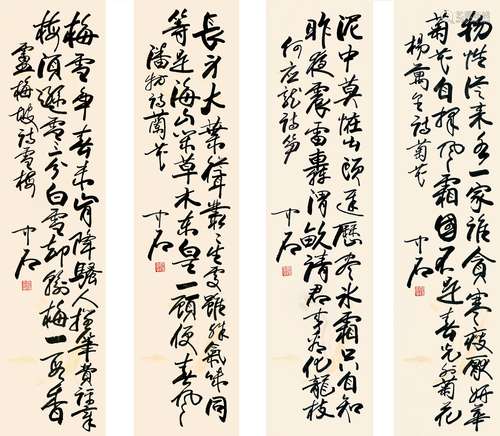 物性從来各一家誰貪寒瘦厭妍華
菊花自擇風霜國不是春光外菊花
楊萬里詩菊花
中石
泥中莫怪出頭遲歷盡冰霜只自知
昨夜震雷轟渭畝請君來看化龍枝
何應龍詩筍
中石
長身大葉聳叢叢生處雖殊氣味同
等是海山草木東皇一顧便春風
潘牥詩蘭花
中石
梅雪爭春未肯降騷人擱筆費評章
梅須遜雪三分白雪却輸梅一段香
盧梅坡詩雪梅
中石